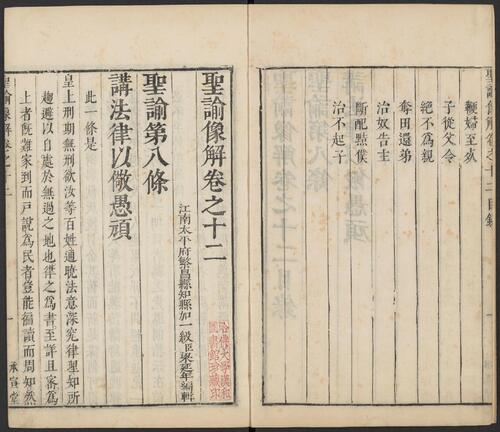 聖諭像解卷之十二目錄
鞭婦至欬
子從父令
絕不為親
奪田還弟
治奴告主
斷配黠僕
治不起子
聖諭像解卷之十二
江南太平府繁昌縣知縣加一級臣梁延年編輯
聖諭第八條
講法律以儆愚頑
此一條是
皇上刑期無刑欲汝等百姓通曉法意深究律理知所
趨避以自處於無過之地也律之為書至詳且審為
上者旣難家到而戶說為民者豈能徧讀而周知然
聖諭像解卷之十二
一
承宣堂
哈佛大學漢和圖書館珍藏印